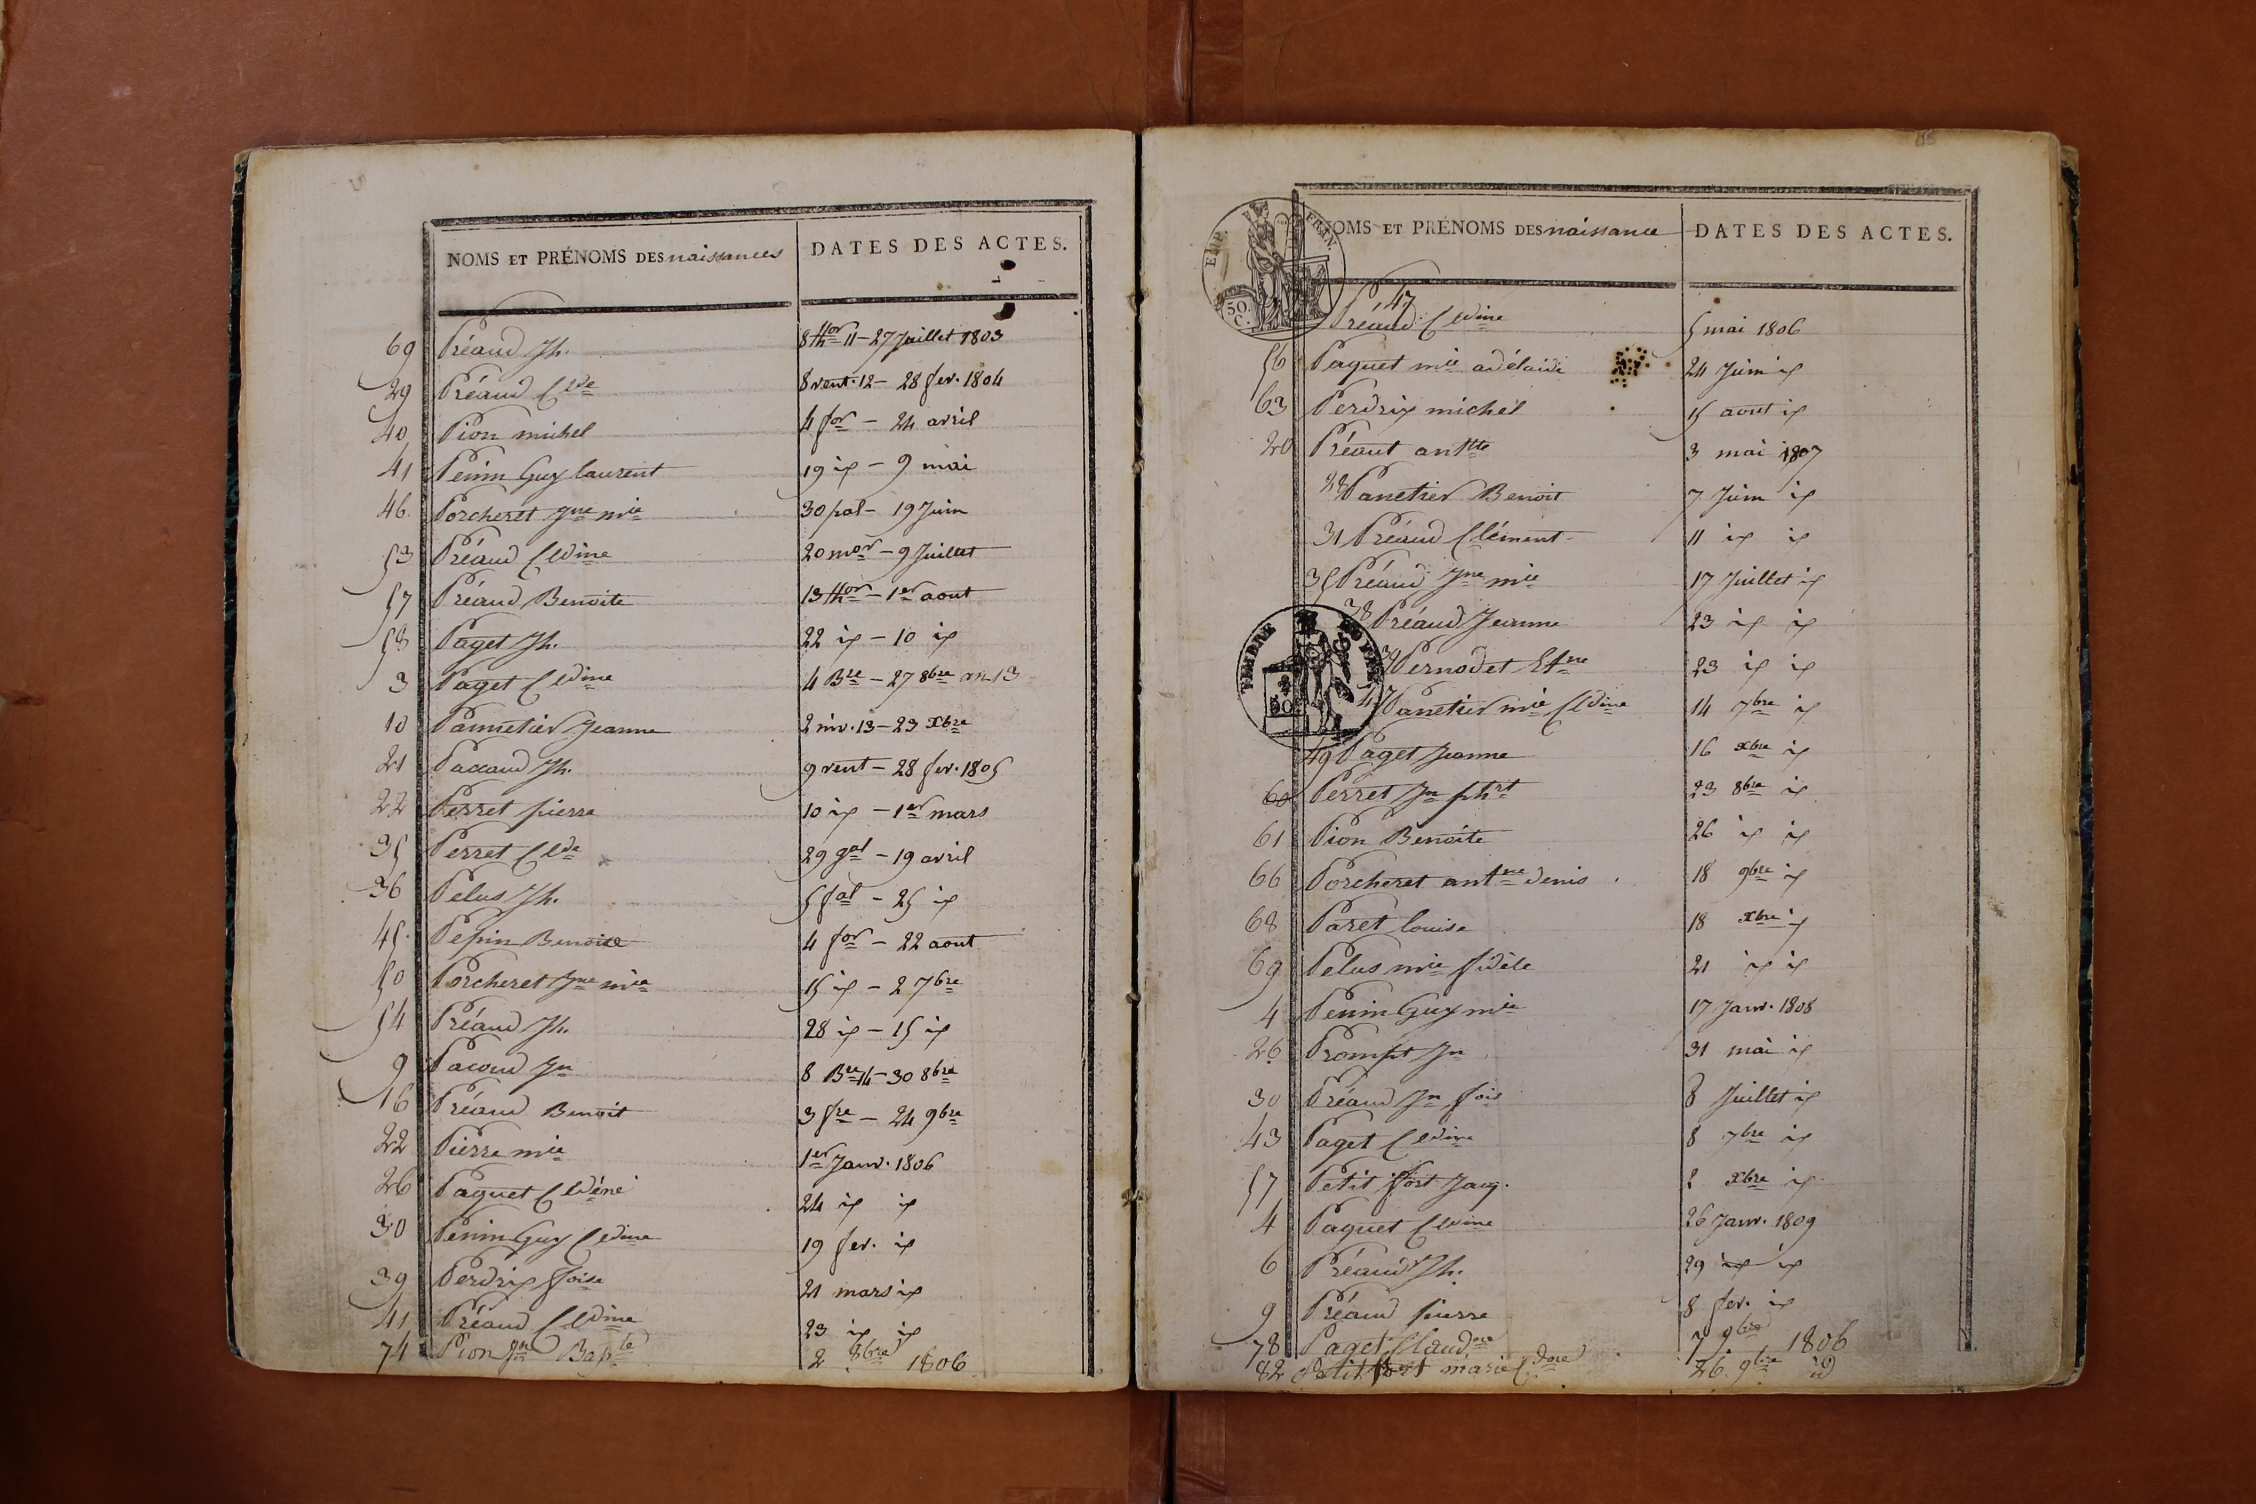 NOMS ET PRÉNOMS DES naissances DATES DES ACTES.
69 Préaud Jh. 8 thor 11 - 27 Juillet 1803
29 Préaud Clde 8 vent. 12 - 28 fev. 1804
40 Pion michel 4 flor - 24 avril
41 Penin Guy laurent 19 ip - 9 mai
46 Porcheret Jne mie 30 pal - 19 Juin
53 Préaud Cldine 20 mor - 9 Juillet
57 Préaud Benoite 13 thor - 1er aout
58 Paget Jh. 22 ip - 10 ip
3 Paget Cldine 4 Bre - 27 8bre an 13
10 Pannetier Jeanne 2 niv. 13 - 23 xbre
21 Paccaud Jh. 9 vent - 28 fev. 1805
22 Perret pierre 10 ip - 1er mars
35 Perret Clde 29 gal - 19 avril
36 Pelus Jh. 5 fal - 25 ip
45 Pepin Benoite 4 for - 22 aout
50 Porcheret Jne mie 15 ip - 2 7bre
54 Préaud Jh. 28 ip - 15 ip
9 Pacoud Jn 8 Bre 14 - 30 8bre
16 Préaud Benoit 3 fre - 24 9bre
22 Pierre mie 1er Janv. 1806
26 Paquet Cldéne 24 ip ip
30 Penin Guy Cldine 19 fev. ip
39 Perdrix foise 21 mars ip
41 Préaud Cldine 23 ip ip
74 Pion Jn Bapte 2 8bre 1806
EMP. FRAN.
50. C.
NOMS ET PRÉNOMS DES naissance DATES DES ACTES.
47 Préaud Cldine 5 mai 1806
56 Paquet mie adélaide 24 Juin ip
63 Perdrix michel 15 aout ip
20 Préaut antte 3 mai 1807
28 Panetier Benoit 7 Juin ip
31 Préaud Clément 11 ip ip
35 Préaud Jne mie 17 Juillet ip
38 Préaud Jeanne 23 ip ip
TIMBRE ROYAL
39 Pernodet Etne 23 ip ip
47 Panetier mie Cldine 14 7bre ip
49 Paget Jeanne 16 xbre ip
60 Perret Jn phrt 23 8bre ip
61 Pion Benoite 26 ip ip
66 Porcheret antne denis 18 9bre ip
68 Paret louise 18 xbre ip
69 Pelus mie fidèle 21 ip ip
4 Penin Guy mie 17 Janv. 1808
26 Prompt Jn 31 mai ip
30 Préaud Jn fois 8 Juillet ip
43 Paget Cldine 8 7bre ip
57 Petit fort Jaq. 2 xbre ip
4 Paquet Cldine 26 Janv. 1809
6 Préaud Jh. 29 ip ip
9 Préaud pierre 8 fev. ip
78 Paget Claudne 7 9bre 1806
82 Petit fort marie Cdne 26 9bre id